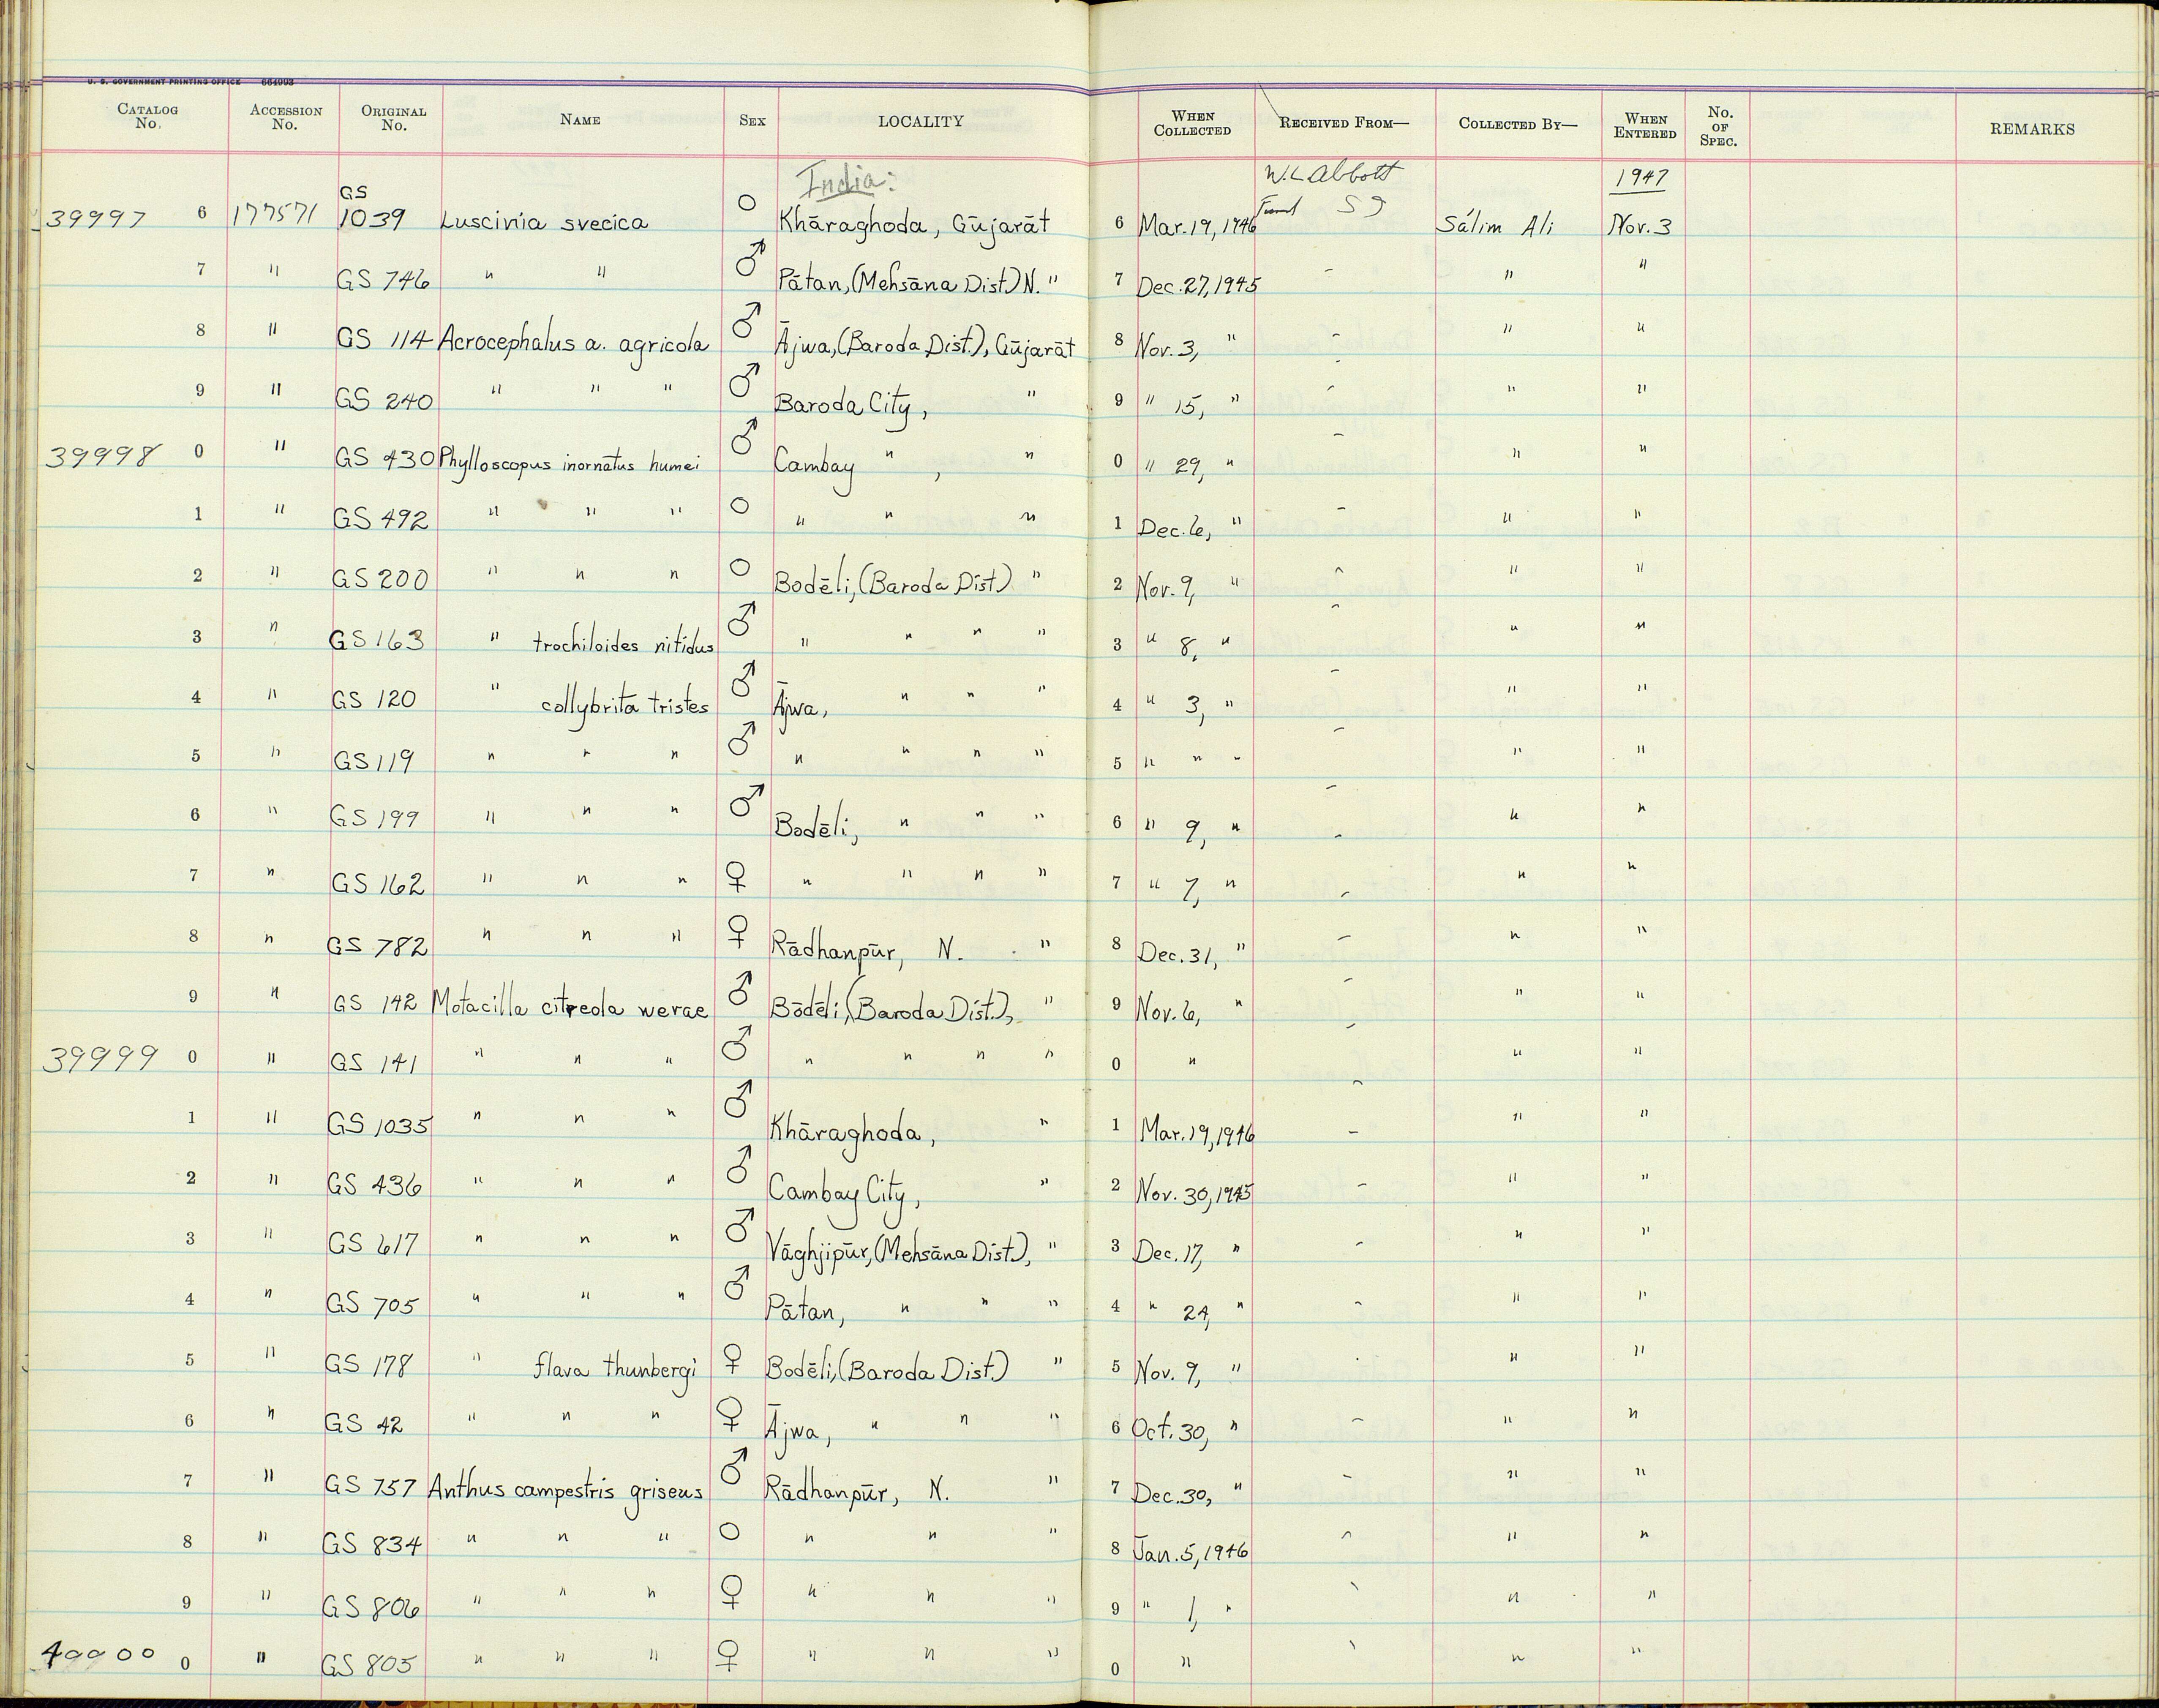 U. S. GOVERNMENT PRINTING OFFICE 664993
CATALOG No. ACCESSION No. ORIGINAL No. NAME SEX LOCALITY WHEN COLLECTED RECEIVED FROM— COLLECTED BY— WHEN ENTERED No. OF SPEC. REMARKS
India: W. L Abbott 1947
39997 6 177571 GS 1039 Luscinia svecica O Khāraghoda, Gūjarāt 6 Mar. 19, 1946 Sálim Ali Nov. 3
7 " GS 746 " " ♂ Pātan, (Mehsāna Dist) N. " 7 Dec. 27, 1945 - " "
8 " GS 114 Acrocephalus a. agricola ♂ Ājwa, (Baroda Dist.), Gūjarāt 8 Nov. 3, " - " "
9 " GS 240 " " " ♂ Baroda City, " 9 " 15, " - " "
39998 0 " GS 430 Phylloscopus inornatus humei ♂ Cambay " , " 0 " 29, " - " "
1 " GS 492 " " " O " " " 1 Dec. 6, " - " "
2 " GS 200 " " " O Bodēli, (Baroda Dist) " 2 Nov. 9, " - " "
3 " GS 163 " trochiloides nitidus ♂ " " " " 3 " 8, " - " "
4 " GS 120 " collybrita tristes ♂ Ājwa, " " " 4 " 3, " - " "
5 " GS 119 " " " ♂ " " " " 5 " " " - " "
6 " GS 199 " " " ♂ Bodēli, " " " 6 " 9, " - " "
7 " GS 162 " " " ♀ " " " " 7 " 7, " - " "
8 " GS 782 " " " ♀ Rādhanpūr, N. " 8 Dec. 31, " - " "
9 " GS 142 Motacilla citreola werae ♂ Bōdēli, (Baroda Dist.), " 9 Nov. 6, " - " "
39999 0 " GS 141 " " " ♂ " " " " 0 " - " "
1 " GS 1035 " " " ♂ Khāraghoda, " 1 Mar. 19, 1946 - " "
2 " GS 436 " " " ♂ Cambay City, " 2 Nov. 30, 1945 - " "
3 " GS 617 " " " ♂ Vāghjipūr, (Mehsāna Dist), " 3 Dec. 17, " - " "
4 " GS 705 " " " ♂ Pātan, " " " 4 " 24, " - " "
5 " GS 178 " flava thunbergi ♀ Bodēli, (Baroda Dist.) " 5 Nov. 9, " - " "
6 " GS 42 " " " ♀ Ājwa, " " " 6 Oct. 30, " - " "
7 " GS 757 Anthus campestris griseus ♂ Rādhanpūr, N. " 7 Dec. 30, " - " "
8 " GS 834 " " " O " " " 8 Jan. 5, 1946 - " "
9 " GS 806 " " " ♀ " " " 9 " 1, " - " "
40000 0 " GS 805 " " " ♀ " " " 0 " - " "